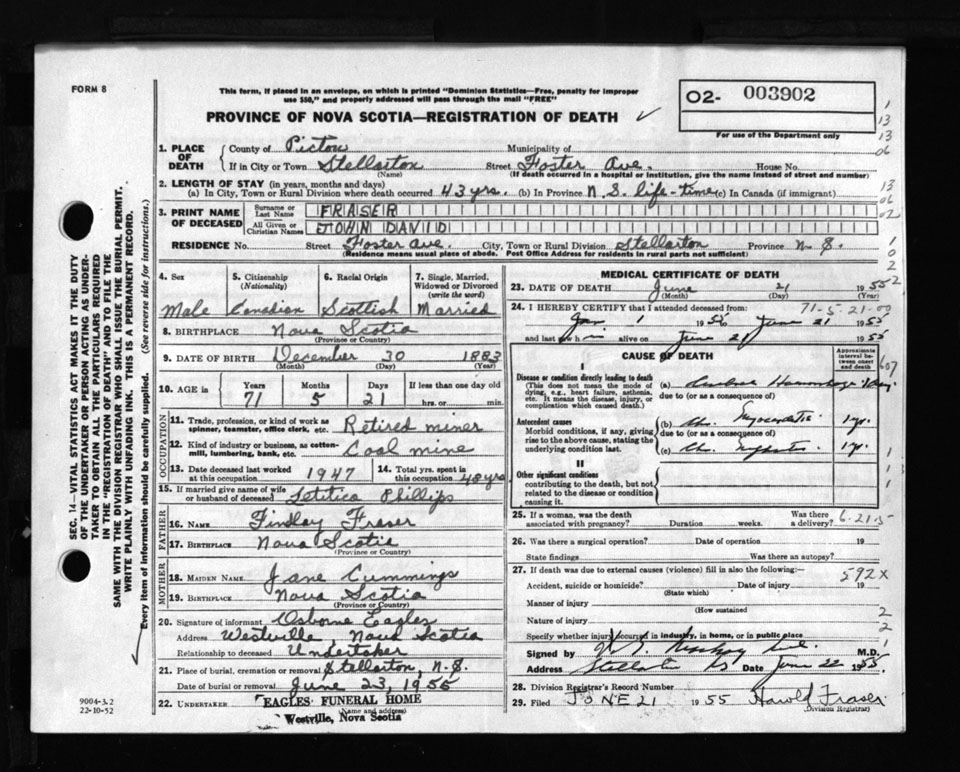 FORM 8
This form, if placed in an envelope, on which is printed "Dominion Statistics—Free, penalty for improper
use $50," and properly addressed will pass through the mail "FREE"
PROVINCE OF NOVA SCOTIA—REGISTRATION OF DEATH
02- 003902
For use of the Department only
1. PLACE OF DEATH
County of Pictou Municipality of
If in City or Town Stellarton Street Foster Ave. House No.
(Name) (If death occurred in a hospital or institution, give the name instead of street and number)
2. LENGTH OF STAY (in years, months and days)
(a) In City, Town or Rural Division where death occurred 43 yrs. (b) In Province N.S. life-time (c) In Canada (if immigrant)
3. PRINT NAME OF DECEASED
Surname or Last Name FRASER
All Given or Christian Names JOHN DAVID
RESIDENCE No. Street Foster Ave. City, Town or Rural Division Stellarton Province N.S.
(Residence means usual place of abode. Post Office Address for residents in rural parts not sufficient)
4. Sex Male
5. Citizenship (Nationality) Canadian
6. Racial Origin Scottish
7. Single, Married, Widowed or Divorced (write the word) Married
8. BIRTHPLACE Nova Scotia
(Province or Country)
9. DATE OF BIRTH December 30 1883
(Month) (Day) (Year)
10. AGE in Years 71 Months 5 Days 21 If less than one day old hrs. or min.
OCCUPATION
11. Trade, profession or kind of work as spinner, teamster, office clerk, etc. Retired miner
12. Kind of industry or business, as cotton-mill, lumbering, bank, etc. Coal mine
13. Date deceased last worked at this occupation 1947
14. Total yrs. spent in this occupation 40 yrs
15. If married give name of wife or husband of deceased Letitica Phillips
FATHER
16. NAME Findlay Fraser
17. BIRTHPLACE Nova Scotia
(Province or Country)
MOTHER
18. MAIDEN NAME Jane Cummings
19. BIRTHPLACE Nova Scotia
(Province or Country)
20. Signature of informant Osborne Eagles
Address Westville, Nova Scotia
Relationship to deceased Undertaker
21. Place of burial, cremation or removal Stellarton, N.S.
Date of burial or removal June 23, 1955
22. UNDERTAKER EAGLES FUNERAL HOME
(Name and address)
Westville, Nova Scotia
MEDICAL CERTIFICATE OF DEATH
23. DATE OF DEATH June 21 1955
(Month) (Day) (Year)
24. I HEREBY CERTIFY that I attended deceased from: 71-5-21-00
Jan 1 1955 to June 21 1955
and last saw h im alive on June 21 1955
CAUSE OF DEATH
Approximate interval between onset and death
I
Disease or condition directly leading to death
(This does not mean the mode of dying, e.g., heart failure, asthenia, etc. It means the disease, injury, or complication which caused death.)
(a) Cerebral Hemorrhage 1 day
due to (or as a consequence of)
Antecedent causes
Morbid conditions, if any, giving rise to the above cause, stating the underlying condition last.
(b) Chr. Myocarditis 1 yr.
due to (or as a consequence of)
(c) Chr. Nephritis 1 yr.
II
Other significant conditions
contributing to the death, but not related to the disease or condition causing it.
25. If a woman, was the death associated with pregnancy? Duration weeks. Was there a delivery?
6-21-5
26. Was there a surgical operation? Date of operation 19
State findings Was there an autopsy?
27. If death was due to external causes (violence) fill in also the following:—
592X
Accident, suicide or homicide? Date of injury 19
(State which)
Manner of injury
(How sustained)
Nature of injury
Specify whether injury occurred in industry, in home, or in public place
Signed by M.D.
Address Stellarton NS Date June 22 1955
28. Division Registrar's Record Number
29. Filed JUNE 21 1955 Harold Fraser
(Division Registrar)
SEC. 14—VITAL STATISTICS ACT MAKES IT THE DUTY
OF THE UNDERTAKER OR PERSON ACTING AS UNDER-
TAKER TO OBTAIN ALL THE PARTICULARS REQUIRED
IN THE "REGISTRATION OF DEATH" AND TO FILE THE
SAME WITH THE DIVISION REGISTRAR WHO SHALL ISSUE THE BURIAL PERMIT.
WRITE PLAINLY WITH UNFADING INK. THIS IS A PERMANENT RECORD.
Every item of information should be carefully supplied. (See reverse side for instructions.)
9004-3.2
22-10-52
1
13
13
06
13
06
02
1
0
2
2
607
1
1
1
2
2
1